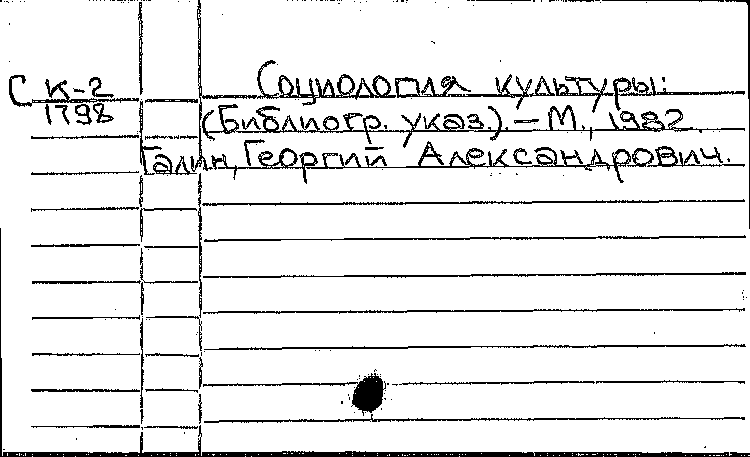 С К-2 Социология культуры:
1798 (Библиогр. указ.). — М., 1982.
Галин, Георгий Александрович.